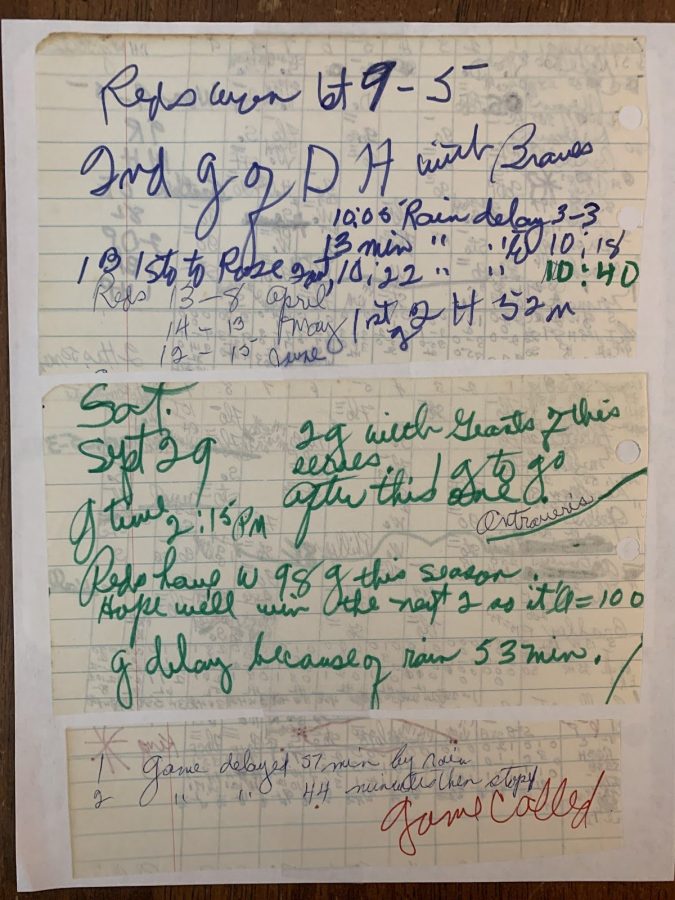 Reds won 1st 9-5
2nd g of D H with Braves
10:05 Rain delay 3-3
13 min " " 10:18
1 B 1st to Rose 2nd, 10:22 " " 10:40
Reds 13-8 April
14-13 May 1st g 2 H 52 m
12-15 June
Sat.
Sept 29
2g with Giants 7 this
series. 1 g to go
after this one.
g time
2:15 PM
Ontiveris
Reds have W 98 g this season.
Hope we'll win the next 2 so it'll = 100
g delay because of rain 53 min.
King
1 Game delayed 57 min by rain
2 " " 44 minutes then stopd
Game Called